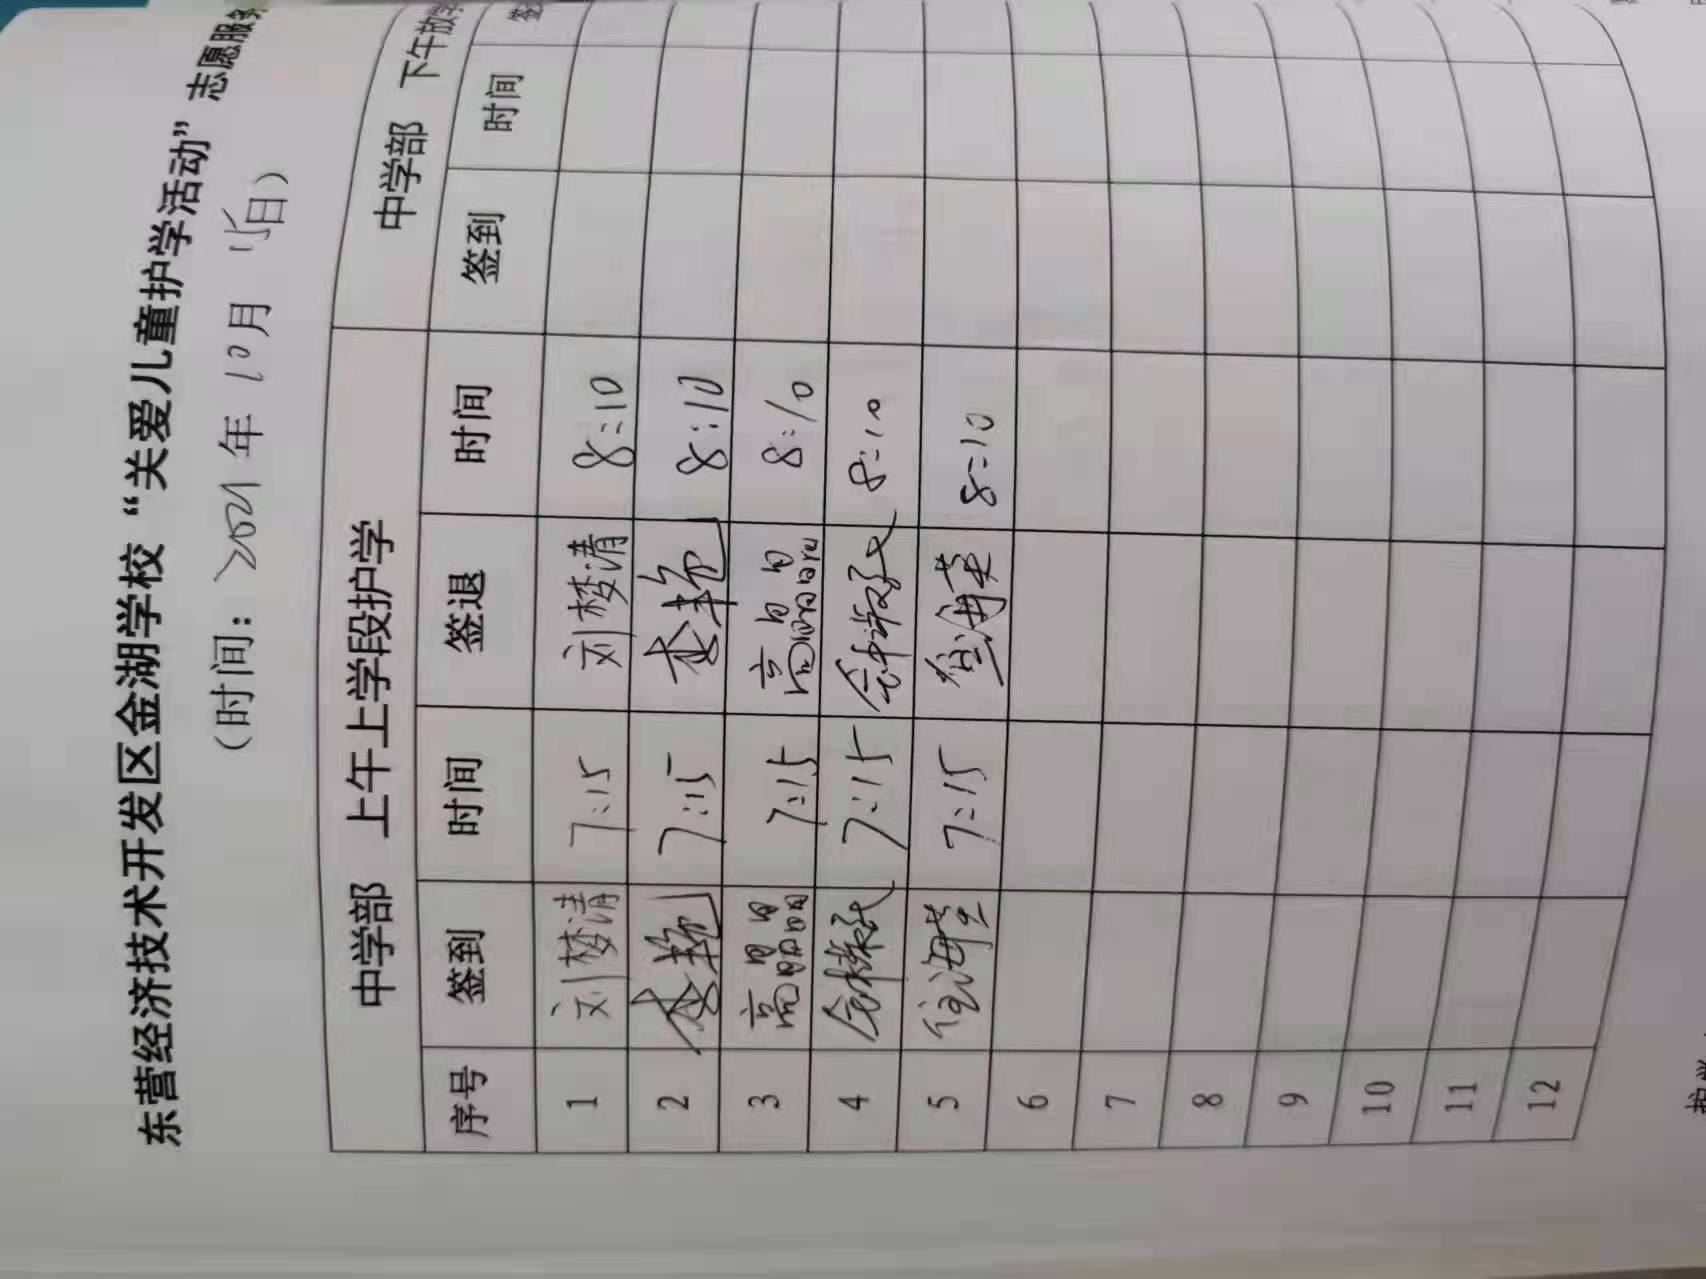 东营经济技术开发区金湖学校“关爱儿童护学活动”志愿服务
（时间：2021年10月15日）
中学部 上午上学段护学 中学部 下午放学
序号 签到 时间 签退 时间 签到 时间 签
1 刘梦清 7:15 刘梦清 8:10
2 7:15 8:10
3 高晶晶 7:15 高晶晶 8:10
4 7:15 8:10
5 7:15 8:10
6
7
8
9
10
11
12